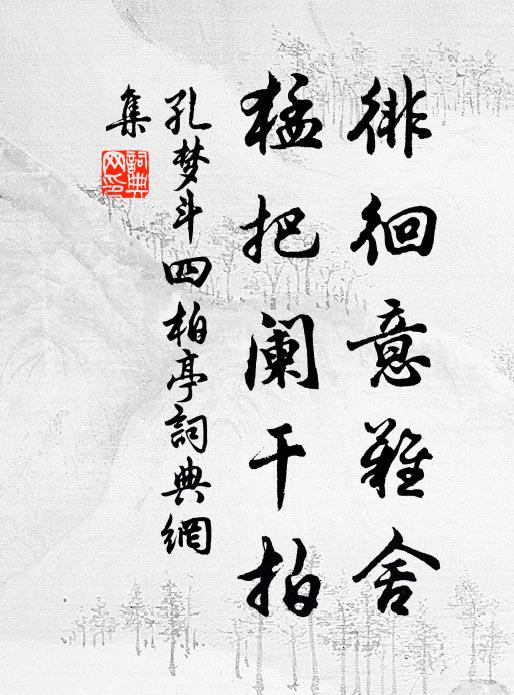 徘徊意难舍
猛把阑干拍
孔梦斗四柏亭詞典網
集
詞典网印